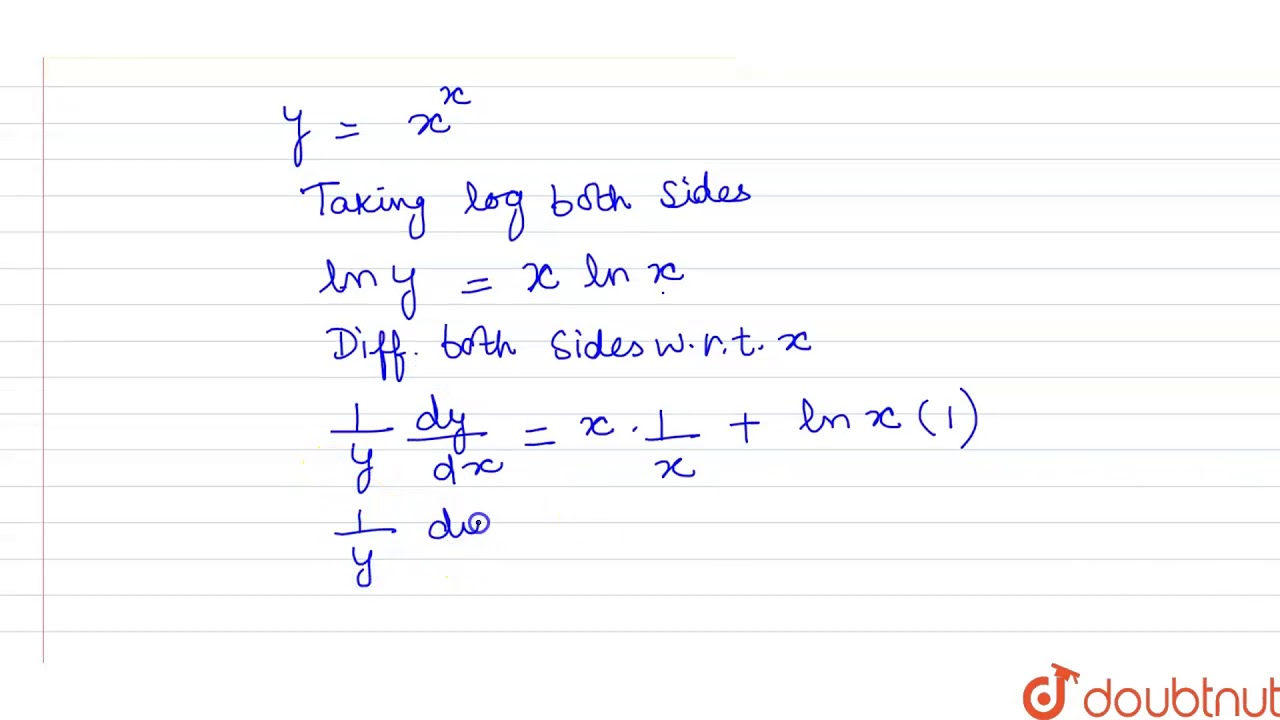 y = x^x
Taking log both sides
ln y = x ln x
Diff. both sides w.r.t. x
1/y dy/dx = x · 1/x + ln x (1)
1/y
doubtnut